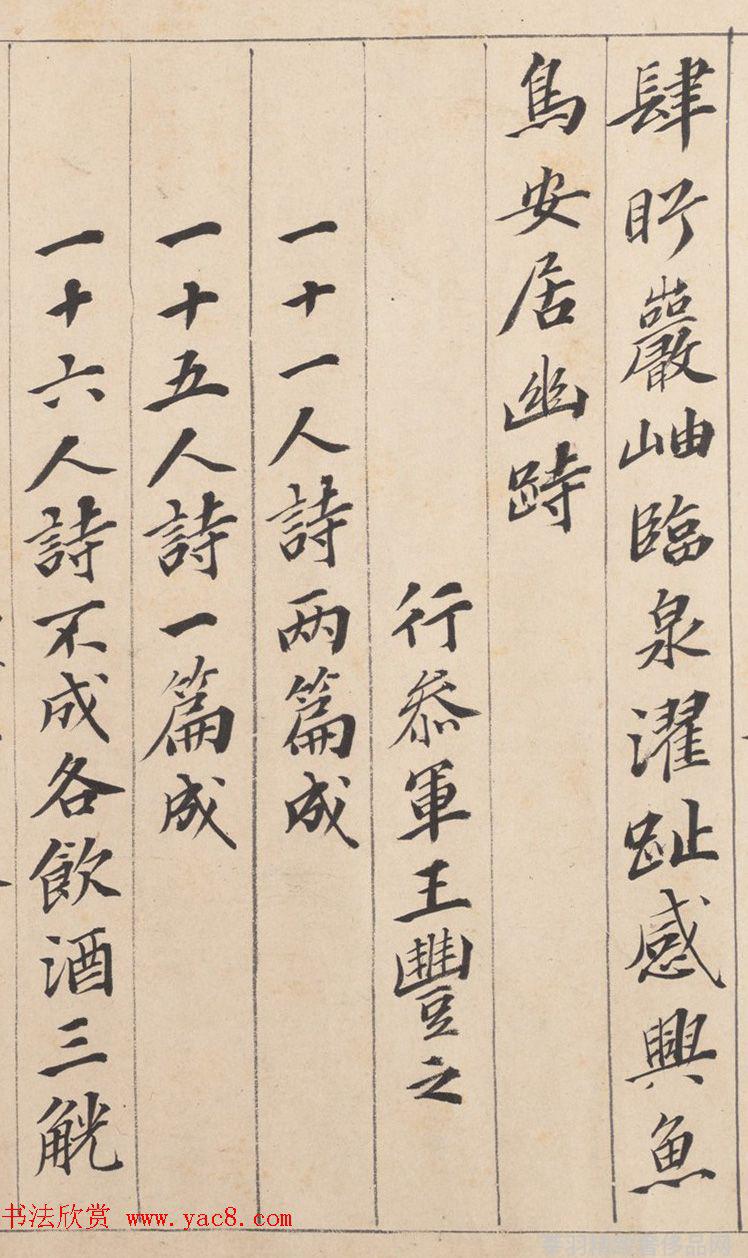 肆眄巖岫臨泉濯趾感興魚
鳥安居幽跱
行叅軍王豐之
一十一人詩两篇成
一十五人詩一篇成
一十六人詩不成各飲酒三觥
书法欣赏 www.yac8.com